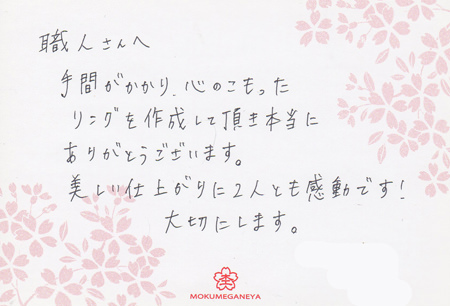 職人さんへ
手間がかかり、心のこもった
リングを作成して頂き本当に
ありがとうございます。
美しい仕上がりに2人とも感動です!
大切にします。
MOKUMEGANEYA